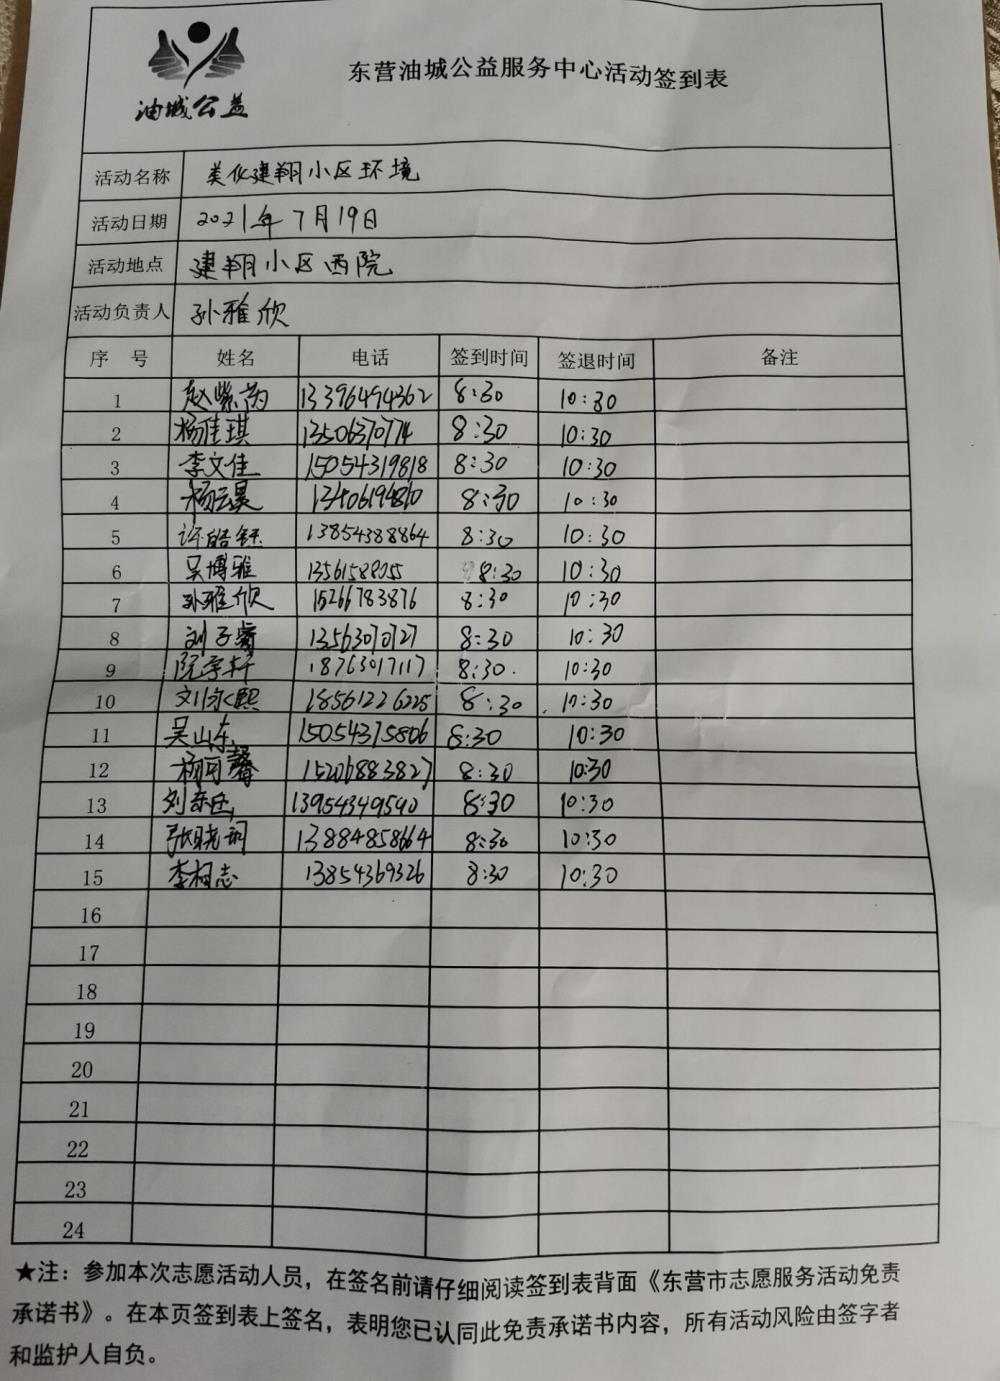 油城公益
东营油城公益服务中心活动签到表
活动名称 美化建翔小区环境
活动日期 2021年7月19日
活动地点 建翔小区西院
活动负责人 孙雅欣
序 号 姓名 电话 签到时间 签退时间 备注
1 赵紫芮 13396494362 8:30 10:30
2 杨佳琪 13506370774 8:30 10:30
3 李文佳 15054319818 8:30 10:30
4 杨云昊 8:30 10:30
5 许皓钰 13854388864 8:30 10:30
6 吴博雅 8:30 10:30
7 孙雅欣 15266783876 8:30 10:30
8 刘子睿 13563070727 8:30 10:30
9 阮宇轩 18763017117 8:30 10:30
10 刘永熙 18561226225 8:30 10:30
11 吴山东 15054375806 8:30 10:30
12 杨可馨 15206883827 8:30 10:30
13 13954349590 8:30 10:30
14 13884858664 8:30 10:30
15 李柯志 13854369326 8:30 10:30
16
17
18
19
20
21
22
23
24
★注：参加本次志愿活动人员，在签名前请仔细阅读签到表背面《东营市志愿服务活动免责
承诺书》。在本页签到表上签名，表明您已认同此免责承诺书内容，所有活动风险由签字者
和监护人自负。